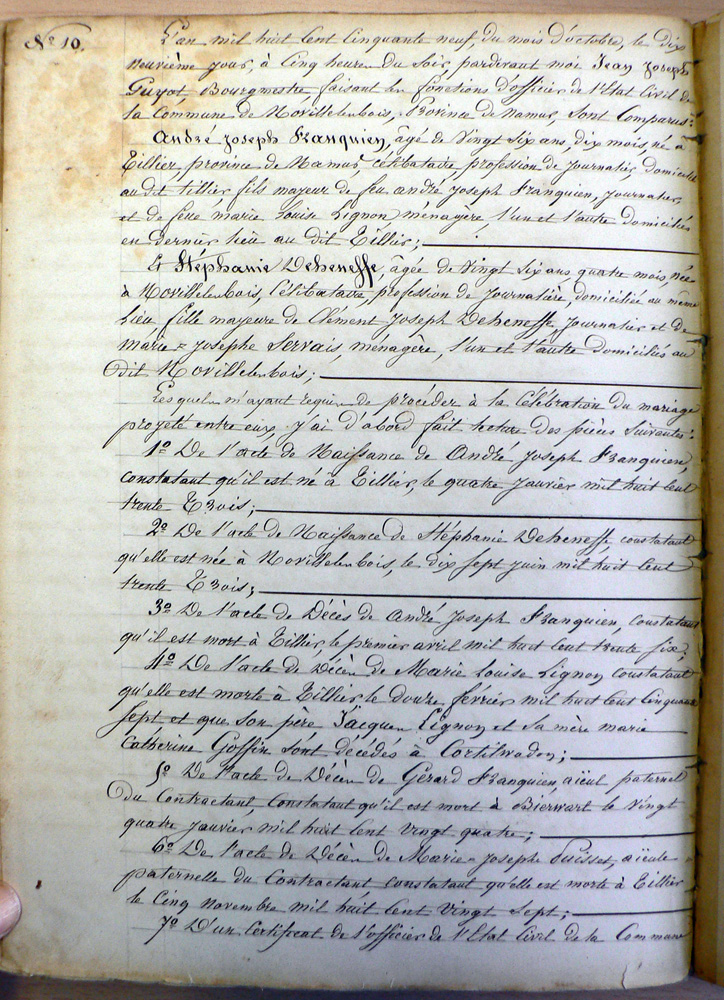 N° 10.
L'an mil huit cent cinquante neuf, du mois d'octobre, le dix
neuvième jour, à cinq heures du soir, pardevant moi Jean Joseph
Guyot, Bourgmestre faisant les fonctions d'officier de l'Etat Civil de
la Commune de Novillelesbois, Province de Namur, sont comparus:
André Joseph Franquien, âgé de vingt six ans, dix mois, né à
Tillier, province de Namur, célibataire, profession de journalier, domicilié
au dit Tillier, fils majeur de feu André Joseph Franquien, journalier,
et de feue Marie Louise Lignon, ménagère, l'un et l'autre domiciliés
en dernier lieu au dit Tillier;
Et Stéphanie Deheneffe, âgée de vingt six ans quatre mois, née
à Novillelesbois, célibataire, profession de journalière, domiciliée au même
Lieu, fille majeure de Clément Joseph Deheneffe, journalier et de
Marie = Josephe Servais, ménagère, l'un et l'autre domiciliés au
Dit Novillelesbois;
Lesquels m'ayant requis de procéder à la célébration du mariage
projeté entre eux, j'ai d'abord fait lecture des pièces suivantes:
1° De l'acte de Naissance de André Joseph Franquien,
constatant qu'il est né à Tillier, le quatre janvier mil huit cent
trente Trois;
2° De l'acte de Naissance de Stéphanie Deheneffe constatant
qu'elle est née à Novillelesbois, le dix sept juin mil huit cent
trente Trois;
3° De l'acte de Décès de André Joseph Franquien, constatant
qu'il est mort à Tillier le premier avril mil huit cent trente six;
4° De l'acte de Décès de Marie Louise Lignon constatant
qu'elle est morte à Tillier le douze février mil huit cent cinquante
sept et que son père Jacques Lignon et sa mère marie
Catherine Goffin sont décédés à Cortilwodon;
5° De l'acte de Décès de Gérard Franquien, aïeul paternel
Du Contractant, constatant qu'il est mort à Bierwart le vingt
quatre janvier mil huit cent vingt quatre;
6° De l'acte de Décès de Marie-Joseph aïeule
paternelle du Contractant constatant qu'elle est morte à Tillier
le cinq novembre mil huit cent vingt sept;
7° D'un Certificat de l'officier de l'Etat Civil de la Commune